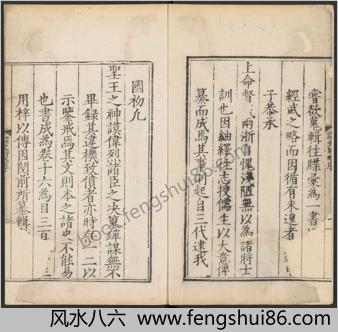 嘗欲蒐輯往牒彙為一書
經武之略而因循有未遑者
子恭承
上命督 兩浙自愧淺陋無以為諸將士
訓也因紬繹往志授儒生以大意俾
纂而成焉其事 起自三代逮我
國初凡
聖王之神謨偉烈諸臣之決策蜚謀無不
畢錄其違機致僨者亦時 一二以
示鑒戒焉其文則本之諸史不能易
也書成為卷十六為目三百
用梓以傳因閱前所纂輯
www.fengshui86.com
风水八六 © www.fengshui86.com